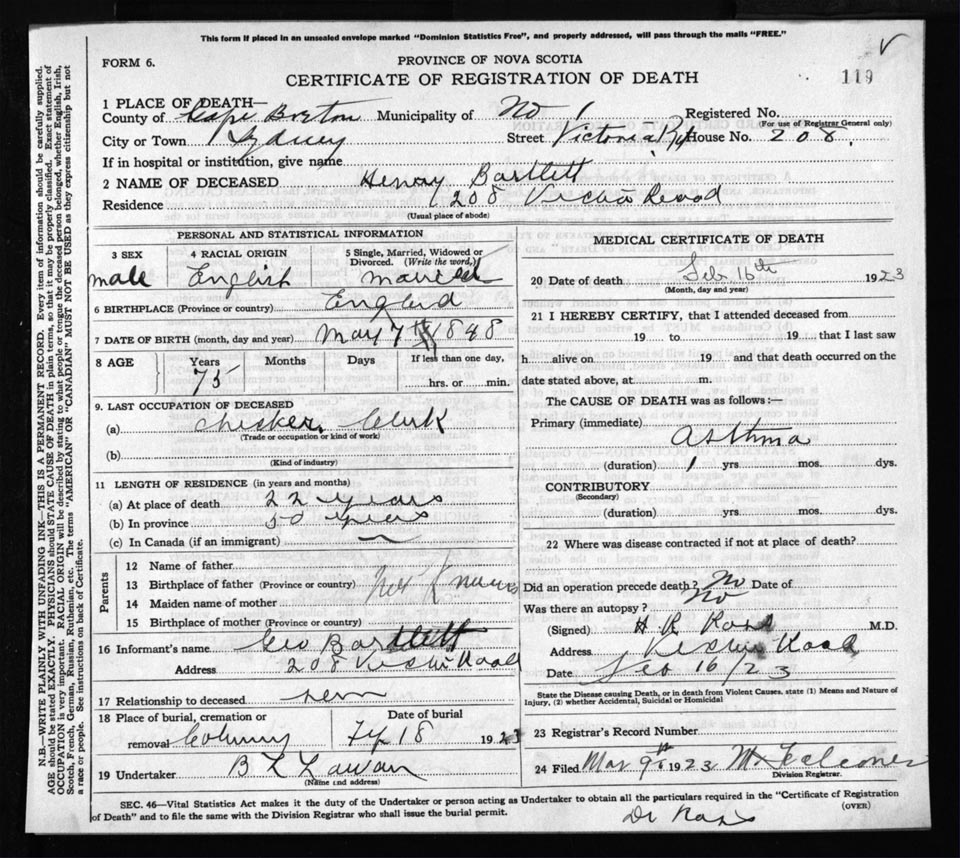 This form if placed in an unsealed envelope marked "Dominion Statistics Free", and properly addressed, will pass through the mails "FREE."
FORM 6.
PROVINCE OF NOVA SCOTIA
CERTIFICATE OF REGISTRATION OF DEATH
119
1 PLACE OF DEATH—
County of Cape Breton Municipality of No 1 Registered No.
(For use of Registrar General only)
City or Town Sydney Street Victoria Rd House No. 208.
If in hospital or institution, give name
2 NAME OF DECEASED Henry Bartlett
Residence 208 Road
(Usual place of abode)
PERSONAL AND STATISTICAL INFORMATION
3 SEX 4 RACIAL ORIGIN 5 Single, Married, Widowed or Divorced. (Write the word,)
male English married
6 BIRTHPLACE (Province or country) England
7 DATE OF BIRTH (month, day and year) May 7th 1848
8 AGE Years Months Days If less than one day,
75 hrs. or min.
9. LAST OCCUPATION OF DECEASED
(a) Checker Clerk
(Trade or occupation or kind of work)
(b)
(Kind of industry)
11 LENGTH OF RESIDENCE (in years and months)
(a) At place of death 22 years
(b) In province 50 years
(c) In Canada (if an immigrant)
Parents
12 Name of father
13 Birthplace of father (Province or country) Not Known
14 Maiden name of mother
15 Birthplace of mother (Province or country)
16 Informant's name Geo Bartlett
Address 208 Road
17 Relationship to deceased
18 Place of burial, cremation or removal Date of burial
18 1923
19 Undertaker
(Name and address)
MEDICAL CERTIFICATE OF DEATH
20 Date of death Feb 16th 1923
(Month, day and year)
21 I HEREBY CERTIFY, that I attended deceased from
19 to 19 that I last saw
h alive on 19 and that death occurred on the
date stated above, at m.
The CAUSE OF DEATH was as follows:—
Primary (immediate)
Asthma
(duration) 1 yrs. mos. dys.
CONTRIBUTORY
(Secondary)
(duration) yrs. mos. dys.
22 Where was disease contracted if not at place of death?
Did an operation precede death? No Date of
Was there an autopsy? No
(Signed) H R Ross M.D.
Address Road
Date Feb 16/23
State the Disease causing Death, or in death from Violent Causes, state (1) Means and Nature of Injury, (2) whether Accidental, Suicidal or Homicidal
23 Registrar's Record Number
24 Filed Mar 9th 1923
Division Registrar.
SEC. 46—Vital Statistics Act makes it the duty of the Undertaker or person acting as Undertaker to obtain all the particulars required in the "Certificate of Registration
of Death" and to file the same with the Division Registrar who shall issue the burial permit.
(OVER)
Dr Ross
N.B.—WRITE PLAINLY WITH UNFADING INK—THIS IS A PERMANENT RECORD. Every item of information should be carefully supplied.
AGE should be stated EXACTLY. PHYSICIANS should STATE CAUSE OF DEATH in plain terms, so that it may be properly classified. Exact statement of
OCCUPATION is very important. RACIAL ORIGIN will be described by stating to what people or tongue the deceased person belonged, whether English, Irish,
Scotch, French, German, Russian, Ruthenian, etc. The terms "AMERICAN" OR "CANADIAN" MUST NOT BE USED as they express citizenship but not
a race or people. See instructions on back of Certificate.